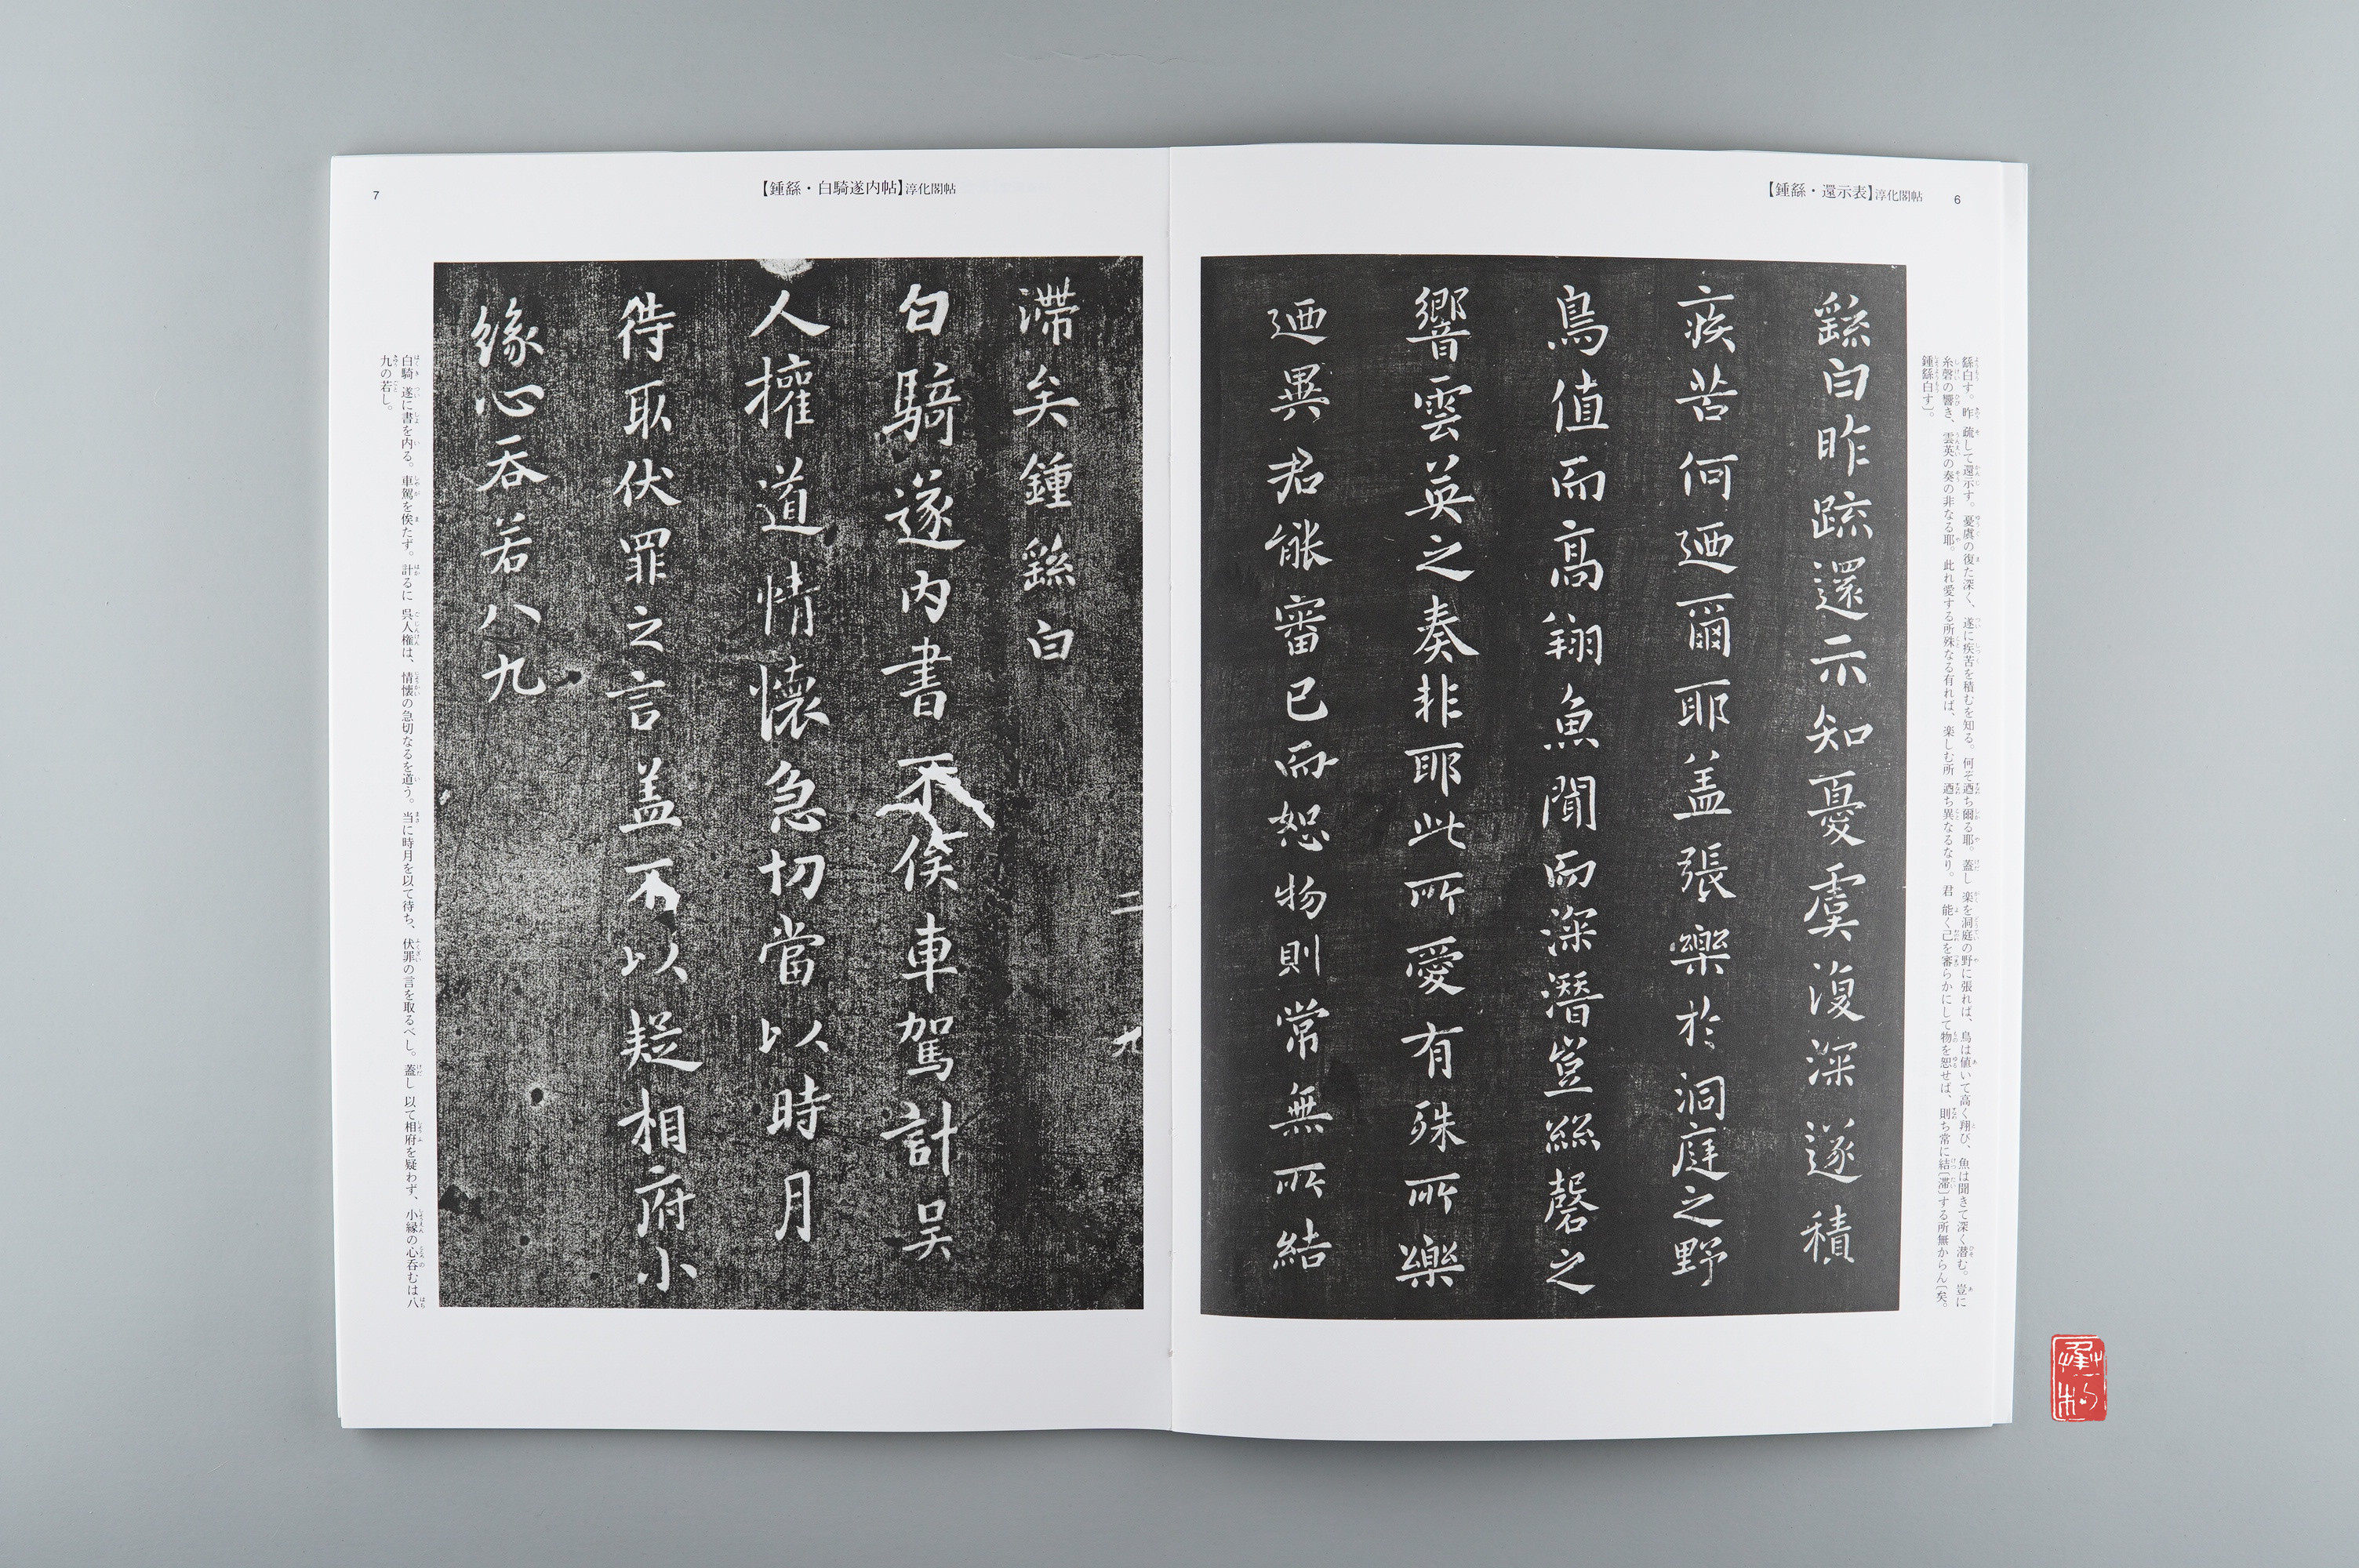 6
【鍾繇・還示表】淳化閣帖
繇白昨疏還示知憂虞復深遂積
疾苦何廼爾耶盖張樂於洞庭之野
鳥值而高翔魚聞而深潛豈絲磬之
響雲英之奏非耶此所愛有殊所樂
廼異君能審己而恕物則常無所結
繇白す。昨 疏して還示す。憂虞の復た深く、遂に疾苦を積むを知る。何ぞ廼ち爾る耶。蓋し 楽を洞庭の野に張れば、鳥は値いて高く翔び、魚は聞きて深く潜む。豈に
糸磬の響き、雲英の奏の非なる耶。此れ愛する所殊なる有れば、楽しむ所 廼ち異なるなり。君 能く己を審らかにして物を恕せば、則ち常に結〔滞〕する所無からん〔矣。
鍾繇白す〕。
7
【鍾繇・白騎遂内帖】淳化閣帖
滯矣鍾繇白
白騎遂内書不俟車駕計吴
人權道情懷急切當以時月
待取伏罪之言盖不以疑相府小
緣心吞若八九
白騎 遂に書を内る。車駕を俟たず。計るに 呉人権は、情懐の急切なるを道う。当に時月を以て待ち、伏罪の言を取るべし。蓋し 以て相府を疑わず、小縁の心呑むは八
九の若し。